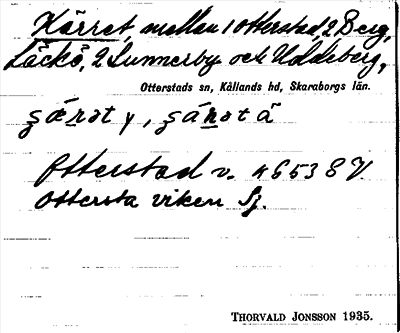 Kärret mellan 1 Otterstad, 2 Berg,
Läckö, 2 Sunnerby och Uddeberg,
Otterstads sn, Kållands hd, Skaraborgs län.
Otterstad v. 46538 V.
Ottersta viken Sj.
THORVALD JONSSON 1935.